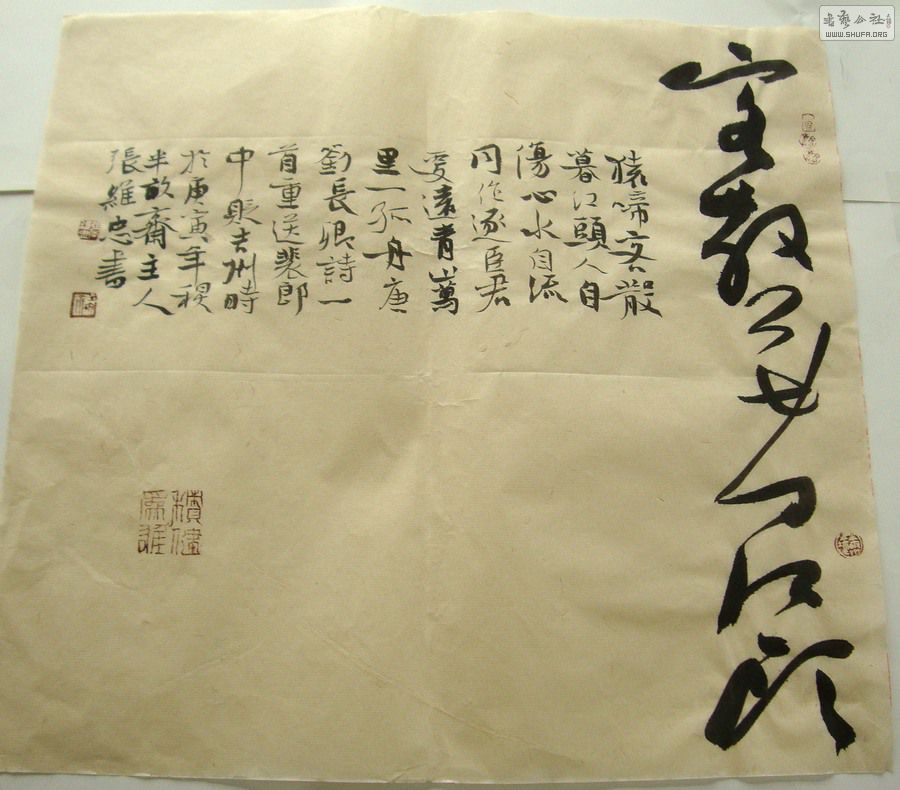 客散暮江頭
猿啼客散
暮江頭人自
傷心水自流
同作逐臣君
更遠青山萬
里一孤舟唐
劉長卿詩一
首重送裴郎
中貶吉州時
於庚寅年秋
半畝齋主人
張維忠書
书艺公社
WWW.SHUFA.ORG